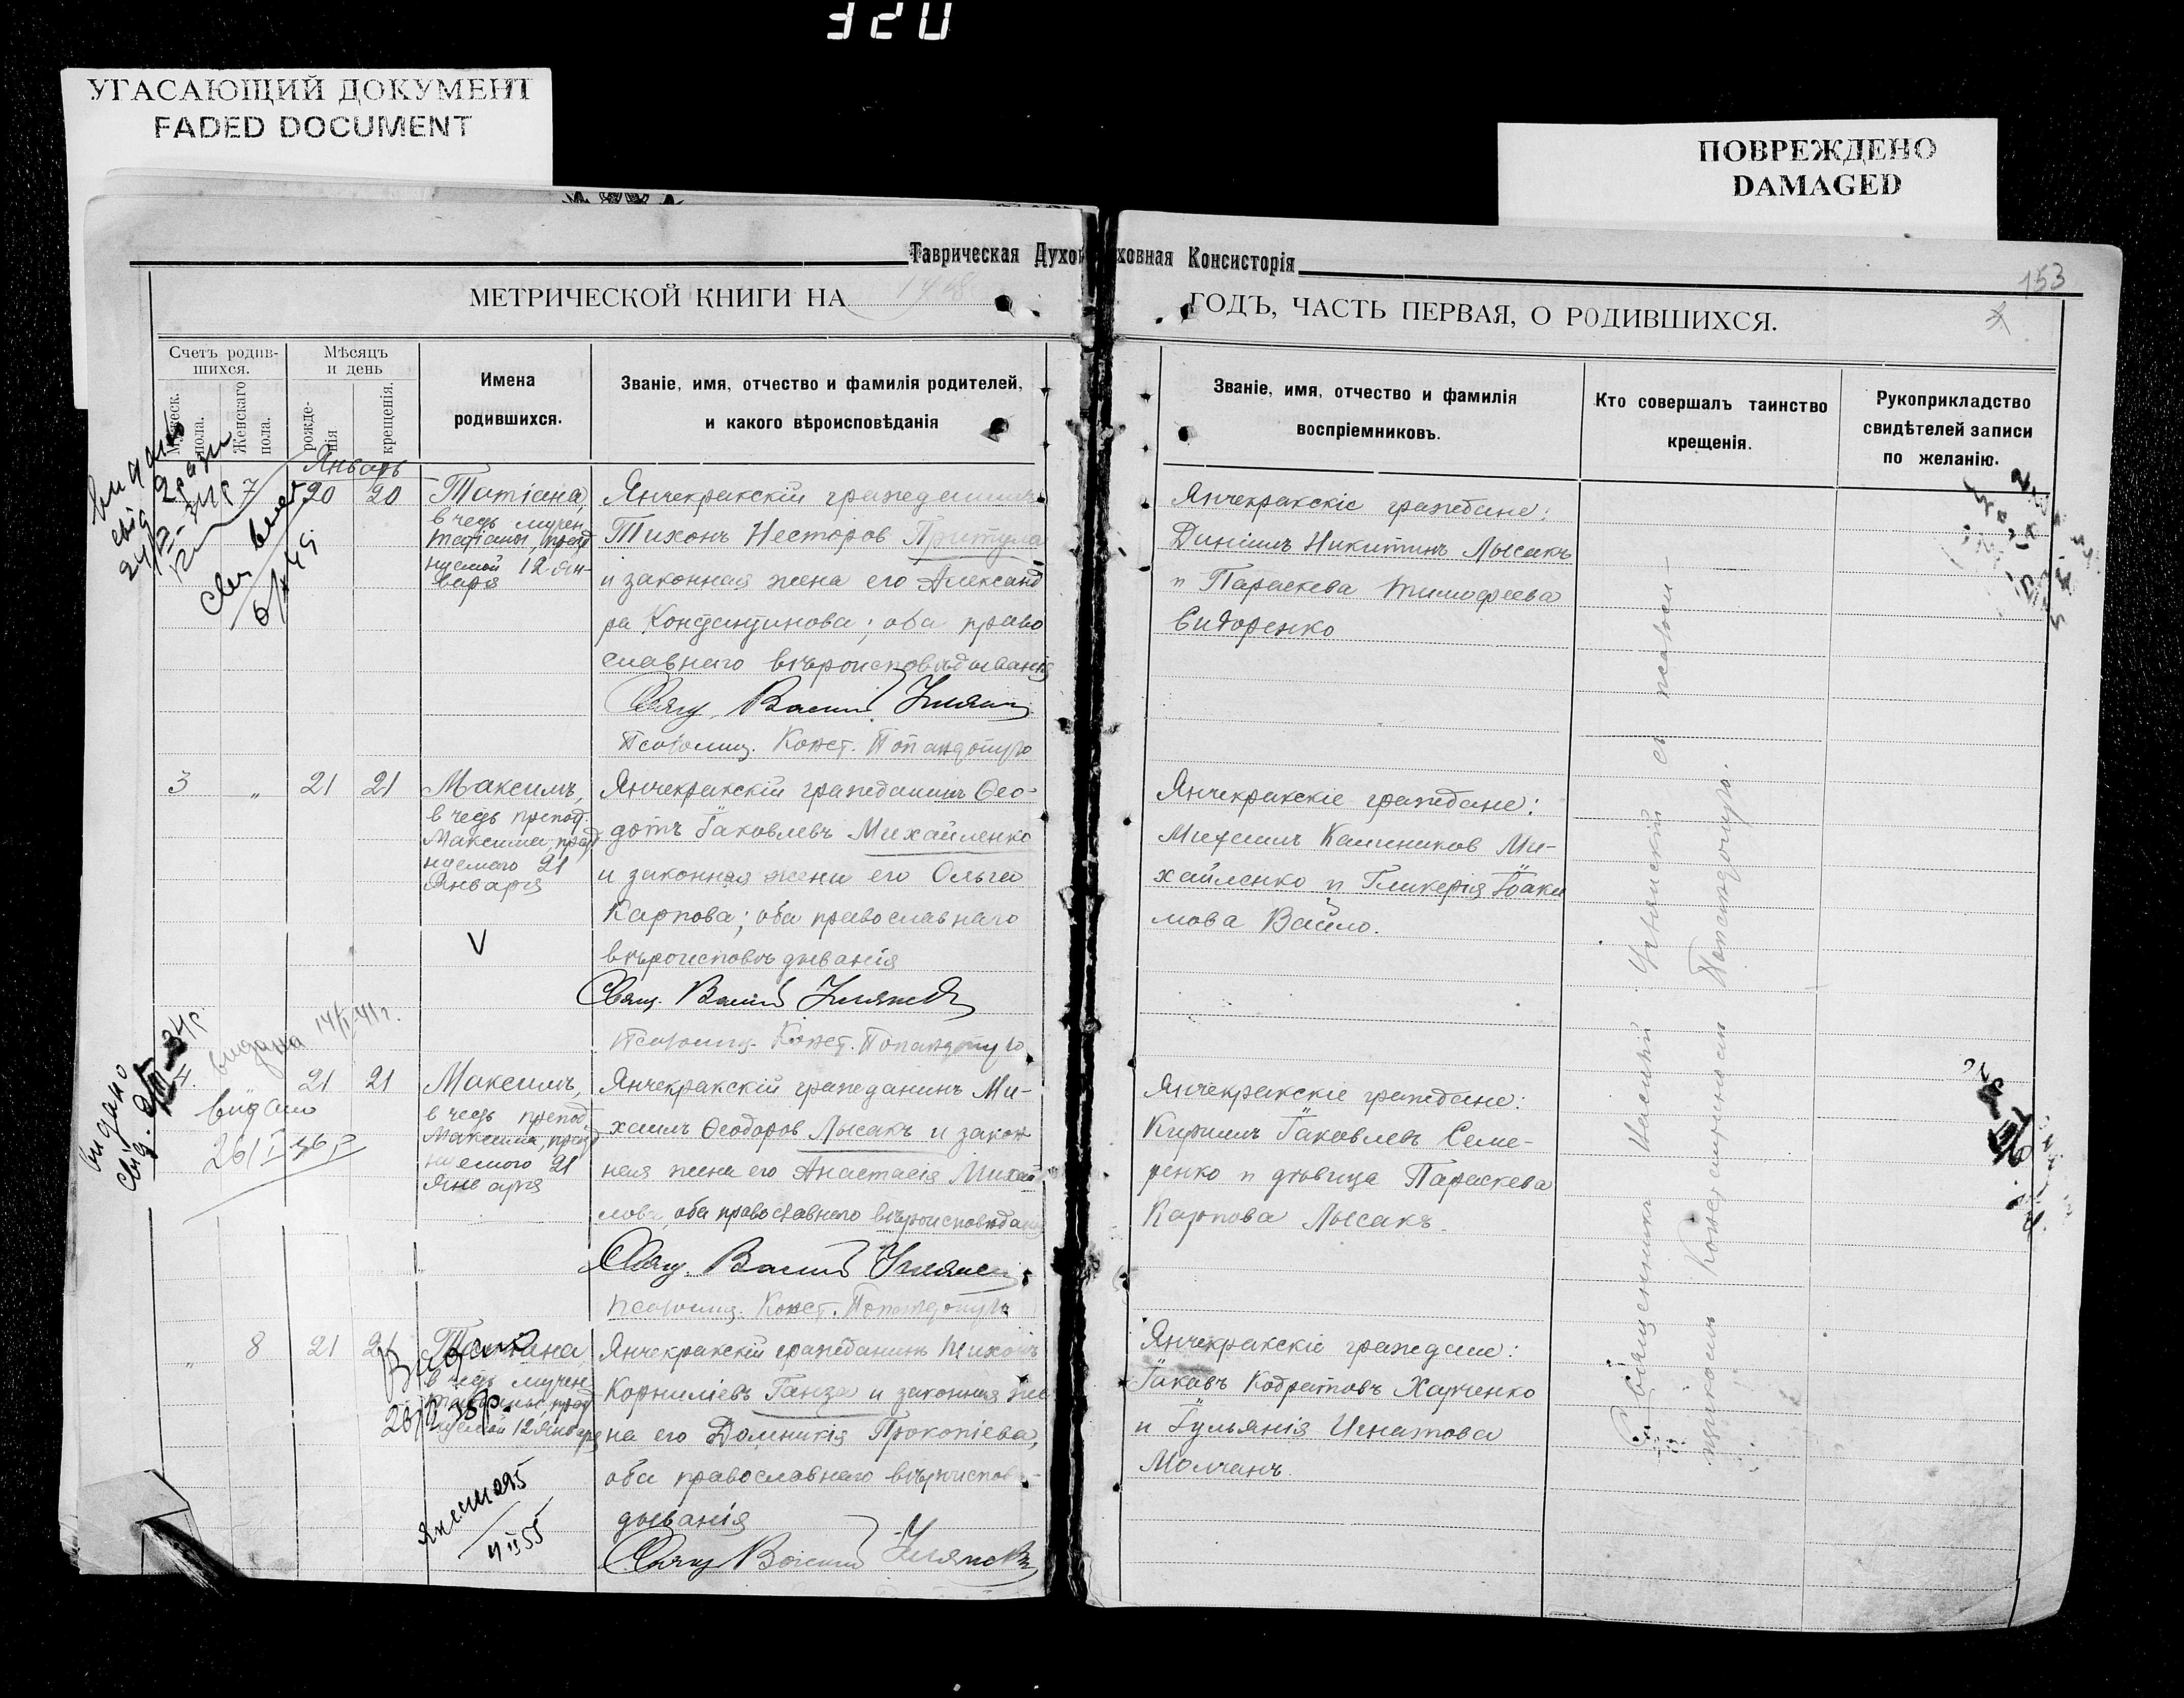 УГАСАЮЩИЙ ДОКУМЕНТ
FADED DOCUMENT
ПОВРЕЖДЕНО
DAMAGED
Таврическая Духовная Консисторія
153
МЕТРИЧЕСКОЙ КНИГИ НА
ГОДЪ, ЧАСТЬ ПЕРВАЯ, О РОДИВШИХСЯ.
Счетъ родив-
шихся.
Мужеск.
пола.
Женскаго
пола.
Мѣсяцъ
и день
рожде-
нія
крещенія.
Имена
родившихся.
Званіе, имя, отчество и фамилія родителей,
и какого вѣроисповѣданія
Званіе, имя, отчество и фамилія
воспріемниковъ.
Кто совершалъ таинство
крещенія.
Рукоприкладство
свидѣтелей записи
по желанію.
Январь
7 20 20
Татіана,
в чесь мучен.
Татіаны, празд
нуемой 12 Ян-
варя
Янчекракскій гражданинъ
Тихонъ Несторов Притула
и законная жена его Александ
ра Константинова; оба право
славнаго вѣроисповѣдыванія
Свящ. Васил
Псаломщ. Конст. Попандопуло
Янчекракскіе граждане:
Даніилъ Никитинъ Лысакъ
и Параскева Тимофеева
Сидоренко
3 „ 21 21
Максимъ,
в чесь препод.
Максима, празд
нуемого 21
Января
Янчекракскій гражданинъ Өео-
дотъ Іаковлевъ Михайленко
и законная жена его Ольга
Карпова; оба православнаго
вѣроисповѣдыванія
Свящ. Васил
Псаломщ. Конст. Попандопуло
Янчекракскіе граждане:
Михаилъ Калиников Ми-
хайленко и Гликерія Іоаки
мова Вайло.
видана 14/I-41г.
4 21 21
видано
26/I 36 г
видано
свід.
Максимъ,
в чесь препод.
Максима, празд
нуемого 21
Января
Янчекракскій гражданинъ Ми-
хаилъ Өеодоров Лысакъ и закон
ная жена его Анастасія Михай
лова, оба православнаго вѣроисповѣдания
Свящ. Васил
Псаломщ. Конст. Попандопуло
Янчекракскіе граждане:
Кирилъ Іаковлевъ Семе-
ренко и дѣвица Параскева
Карпова Лысакъ.
„ 8 21 21
Татіана,
в чесь мучен.
Татіаны, празд
нуемой 12 Января
Видано
Янчекракскій гражданинъ Тихонъ
Корниліевъ Ганза и законная же
на его Домникія Прокопіева,
оба православнаго вѣроисповѣ-
дыванія
Свящ Васил
Янчекракскіе граждане:
Іаковъ Кодратовъ Харченко
и Іуліанія Игнатова
Молчанъ.
Священникъ Василій с псалом-
щикомъ Константиномъ Попандопуло.